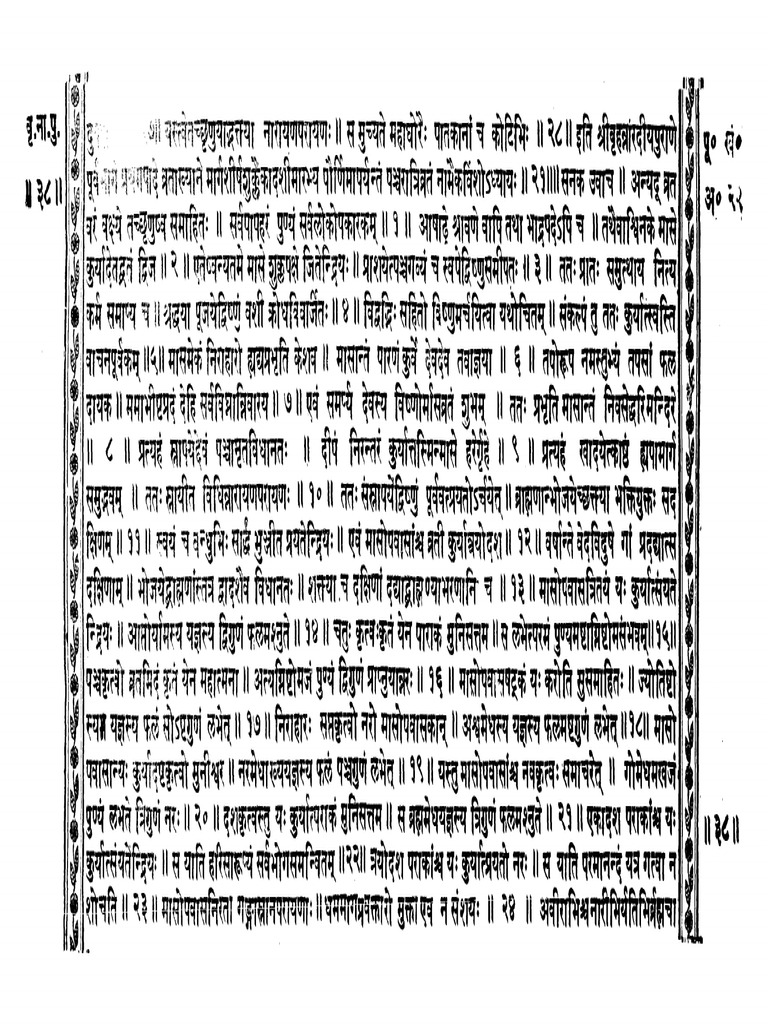 बृ.ना.पु.
॥३८॥
पू॰ खं॰
अ॰ २२
यस्त्वेतच्छृणुयाद्भक्त्या नारायणपरायणः॥ स मुच्यते महाघोरैः पातकानां च कोटिभिः ॥ २८॥ इति श्रीबृहन्नारदीयपुराणे
पूर्वभागे प्रथमपादे व्रताख्याने मार्गशीर्षशुक्लैकादशीमारभ्य पौर्णिमापर्यन्तं पञ्चरात्रिव्रतं नामैकविंशोऽध्यायः॥ २१॥॥ सनक उवाच ॥ अन्यद् व्रत
वरं वक्ष्ये तच्छृणुष्व समाहितः ॥ सर्वपापहरं पुण्यं सर्वलोकोपकारकम् ॥ १ ॥ आषाढे श्रावणे वापि तथा भाद्रपदेऽपि च ॥ तथैवाश्विनके मासे
कुर्यादेतद्व्रतं द्विज ॥ २ ॥ एतेष्वन्यतमे मासे शुक्लपक्षे जितेन्द्रियः॥ प्राशयेत्पञ्चगव्यं च स्वपेद्विष्णुसमीपतः॥ ३॥ ततः प्रातः समुत्थाय नित्य
कर्म समाप्य च॥ श्रद्धया पूजयेद्विष्णुं वशी क्रोधविवर्जितः॥४॥ विद्वद्भिः सहितो विष्णुमर्चयित्वा यथोचितम् ॥ संकल्पं तु ततः कुर्यात्स्वस्ति
वाचनपूर्वकम् ॥५॥ मासमेकं निराहारो ह्यद्यप्रभृति केशव ॥ मासान्ते पारणं कुर्वे देवदेव तवाज्ञया ॥ ६ ॥ तपोरूप नमस्तुभ्यं तपसां फल
दायक॥ ममाभीष्टप्रदं देहि सर्वविघ्नान्निवारय ॥७॥ एवं समर्प्य देवस्य विष्णोर्मासव्रतं शुभम् ॥ ततः प्रभृति मासान्तं निवसेद्धरिमन्दिरे
॥ ८ ॥ प्रत्यहं स्नापयेद्देवं पञ्चामृतविधानतः ॥ दीपं निरन्तरं कुर्यात्तस्मिन्मासे हरेर्गृहे ॥ ९ ॥ प्रत्यहं खादयेत्काष्ठं ह्यपामार्ग
समुद्भवम् ॥ ततः स्नायीत विधिवन्नारायणपरायणः॥ १०॥ ततः संस्नापयेद्विष्णुं पूर्ववत्प्रयतोऽर्चयेत्॥ ब्राह्मणान्भोजयेच्छक्त्या भक्तियुक्तः सद
क्षिणम् ॥ ११॥ स्वयं च बन्धुभिः सार्द्धं भुञ्जीत प्रयतेन्द्रियः॥ एवं मासोपवासांश्च व्रती कुर्यात्त्रयोदश॥ १२॥ वर्षान्ते वेदविदुषे गां प्रदद्यात्स
दक्षिणाम्॥ भोजयेद्ब्राह्मणांस्तत्र द्वादशैव विधानतः॥ शक्त्या च दक्षिणां दद्याद्ब्राह्मण्याभरणानि च ॥ १३॥ मासोपवासत्रितयं यः कुर्यात्संयते
न्द्रियः॥ आतोर्यामस्य यज्ञस्य द्विगुणं फलमश्नुते॥ १४॥ चतुः कृत्वः कृतं येन पाराकं मुनिसत्तम॥ स लभेत्परमं पुण्यमष्टाग्निष्टोमसंभवम्॥१५॥
पञ्चकृत्वो व्रतमिदं कृतं येन महात्मना॥ अत्यग्निष्टोमजं पुण्यं द्विगुणं प्राप्नुयान्नरः॥ १६॥ मासोपवासषट्कं यः करोति सुसमाहितः॥ ज्योतिष्टो
मस्य यज्ञस्य फलं सोऽष्टगुणं लभेत्॥ १७॥ निराहारः सप्तकृत्वो नरो मासोपवासकान्॥ अश्वमेधस्य यज्ञस्य फलमष्टगुणं लभेत्॥१८॥ मासो
पवासान्यः कुर्यादष्टकृत्वो मुनीश्वर॥ नरमेधाख्ययज्ञस्य फलं पञ्चगुणं लभेत्॥ १९॥ यस्तु मासोपवासांश्च नवकृत्वः समाचरेत्॥ गोमेधमखजं
पुण्यं लभते त्रिगुणं नरः॥ २०॥ दशकृत्वस्तु यः कुर्यात्पराकं मुनिसत्तम॥ स ब्रह्ममेधयज्ञस्य त्रिगुणं फलमश्नुते॥ २१॥ एकादश पराकांश्च यः
कुर्यात्संयतेन्द्रियः॥ स याति हरिसारूप्यं सर्वभोगसमन्वितम्॥२२॥ त्रयोदश पराकांश्च यः कुर्यात्प्रयतो नरः॥ स याति परमानन्दं यत्र गत्वा न
शोचति॥ २३॥ मासोपवासनिरता गङ्गास्नानपरायणाः॥ धर्ममार्गप्रवक्तारो मुक्ता एव न संशयः॥ २४ ॥ अवीराभिश्च नारीभिर्यतिभिर्ब्रह्मचा
॥३८॥